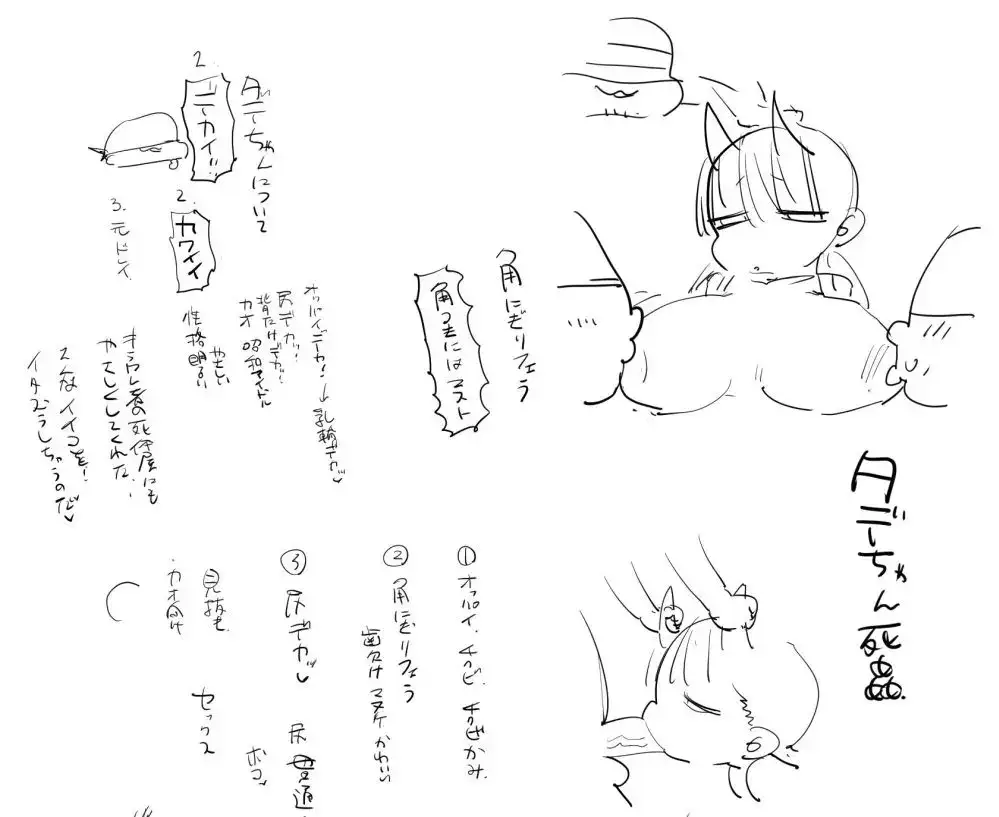 ダデーちゃん死姦
角にぎりフェラ
角つきにはマスト
ダデーちゃんについて
2.
デカイ!!
2.
カワイイ
3. 元ドレイ
オッパイデカ!→乳輪デカッ
尻デカッ!
背だけデカ!
カオ 昭和アイドル
やさしい
性格明るい
キラワレ者の死体屋にも
やさしくしてくれた
そんなイイコを!
イタズラしちゃうのだ
① オッパイ、チクビ、
② 角にぎりフェラ
歯欠けマヌケかわいい
③ 尻デカッ
尻
ボコ
セックス
見抜き
・カオ向け